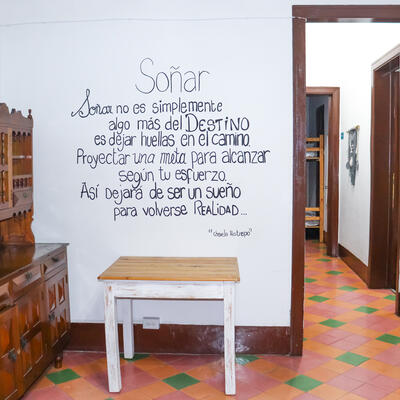 Soñar
Soñar no es simplemente
algo más del DESTINO
es dejar huellas en el camino.
Proyectar una meta para alcanzar
según tu esfuerzo.
Así dejará de ser un sueño
para volverse REALIDAD...
Restrepo"